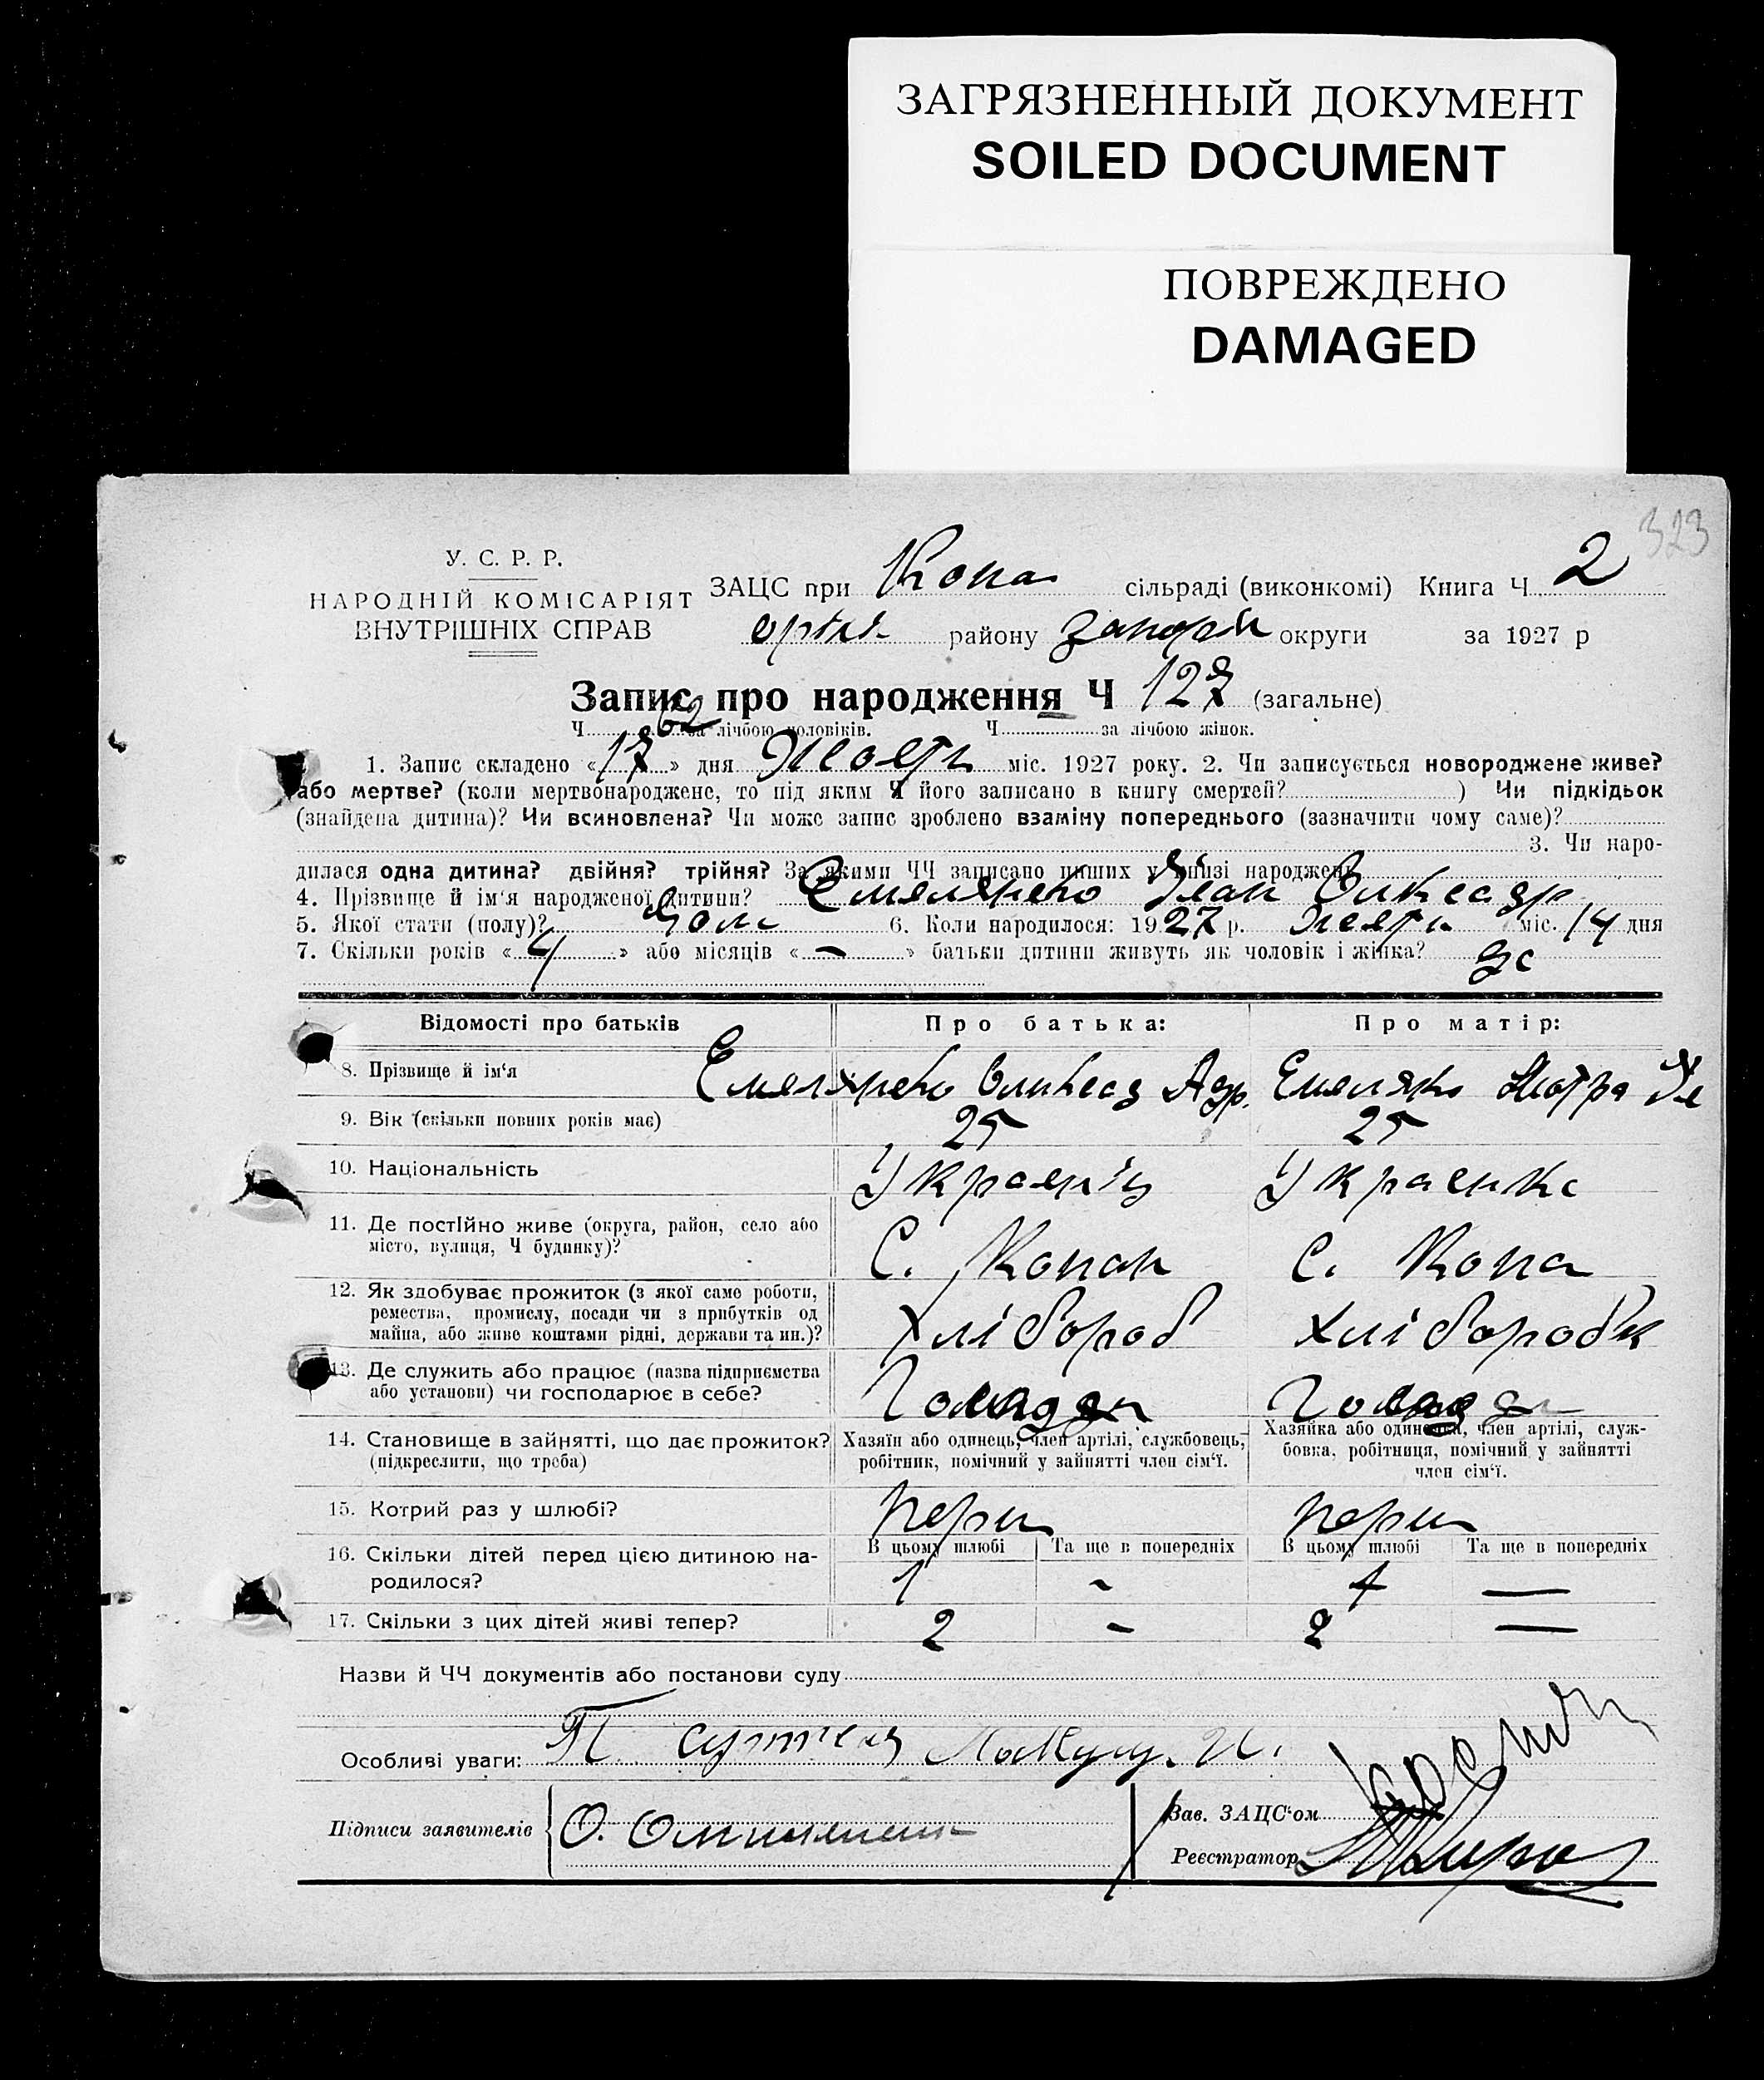 ЗАГРЯЗНЕННЫЙ ДОКУМЕНТ
SOILED DOCUMENT
ПОВРЕЖДЕНО
DAMAGED
323
У. С. Р. Р.
НАРОДНІЙ КОМІСАРІЯТ
ВНУТРІШНІХ СПРАВ
ЗАЦС при Копа сільраді (виконкомі) Книга Ч 2
оріхі району Запоріж округи за 1927 р
Запис про народження Ч 127 (загальне)
Ч 62 за лічбою чоловіків. Ч за лічбою жінок.
1. Запис складено « 17 » дня Жовтн міс. 1927 року. 2. Чи записується новороджене живе?
або мертве? (коли мертвонароджене, то під яким Ч його записано в книгу смертей? ) Чи підкідьок
(знайдена дитина)? Чи всиновлена? Чи може запис зроблено взаміну попереднього (зазначити чому саме)?
3. Чи наро-
дилася одна дитина? двійня? трійня? За якими ЧЧ записано инших у книзі народжень
4. Прізвище й ім'я народженої дитини? Емелянено Іван Олксадр
5. Якої стати (полу)? Чолс 6. Коли народилося: 1927 р. Жовтн міс. 14 дня
7. Скільки років « 4 » або місяців « – » батьки дитини живуть як чоловік і жінка?
Відомості про батьків Про батька: Про матір:
8. Прізвище й ім'я Емелянено Олксад Адр. Емеляно Мотра
9. Вік (скільки повних років має) 25 25
10. Національність Украенць Украенка
11. Де постійно живе (округа, район, село або С. Копан С. Копа
місто, вулиця, Ч будинку)?
12. Як здобуває прожиток (з якої саме роботи,
ремества, промислу, посади чи з прибутків од Хлібороб Хлібороб
майна, або живе коштами рідні, держави та ин.)?
13. Де служить або працює (назва підприємства
або установи) чи господарює в себе?
14. Становище в зайнятті, що дає прожиток? Хазяїн або одинець, член артілі, службовець, Хазяйка або одиначка, член артілі, служ-
(підкреслити, що треба) робітник, помічний у зайнятті член сім'ї. бовка, робітниця, помічний у зайнятті
член сім'ї.
15. Котрий раз у шлюбі? перш перш
16. Скільки дітей перед цією дитиною на- В цьому шлюбі Та ще в попередніх В цьому шлюбі Та ще в попередніх
родилося? 1 - 1 —
17. Скільки з цих дітей живі тепер? 2 - 2 —
Назви й ЧЧ документів або постанови суду
Особливі уваги:
Підписи заявителів О.
Зав. ЗАЦС'ом
Реєстратор